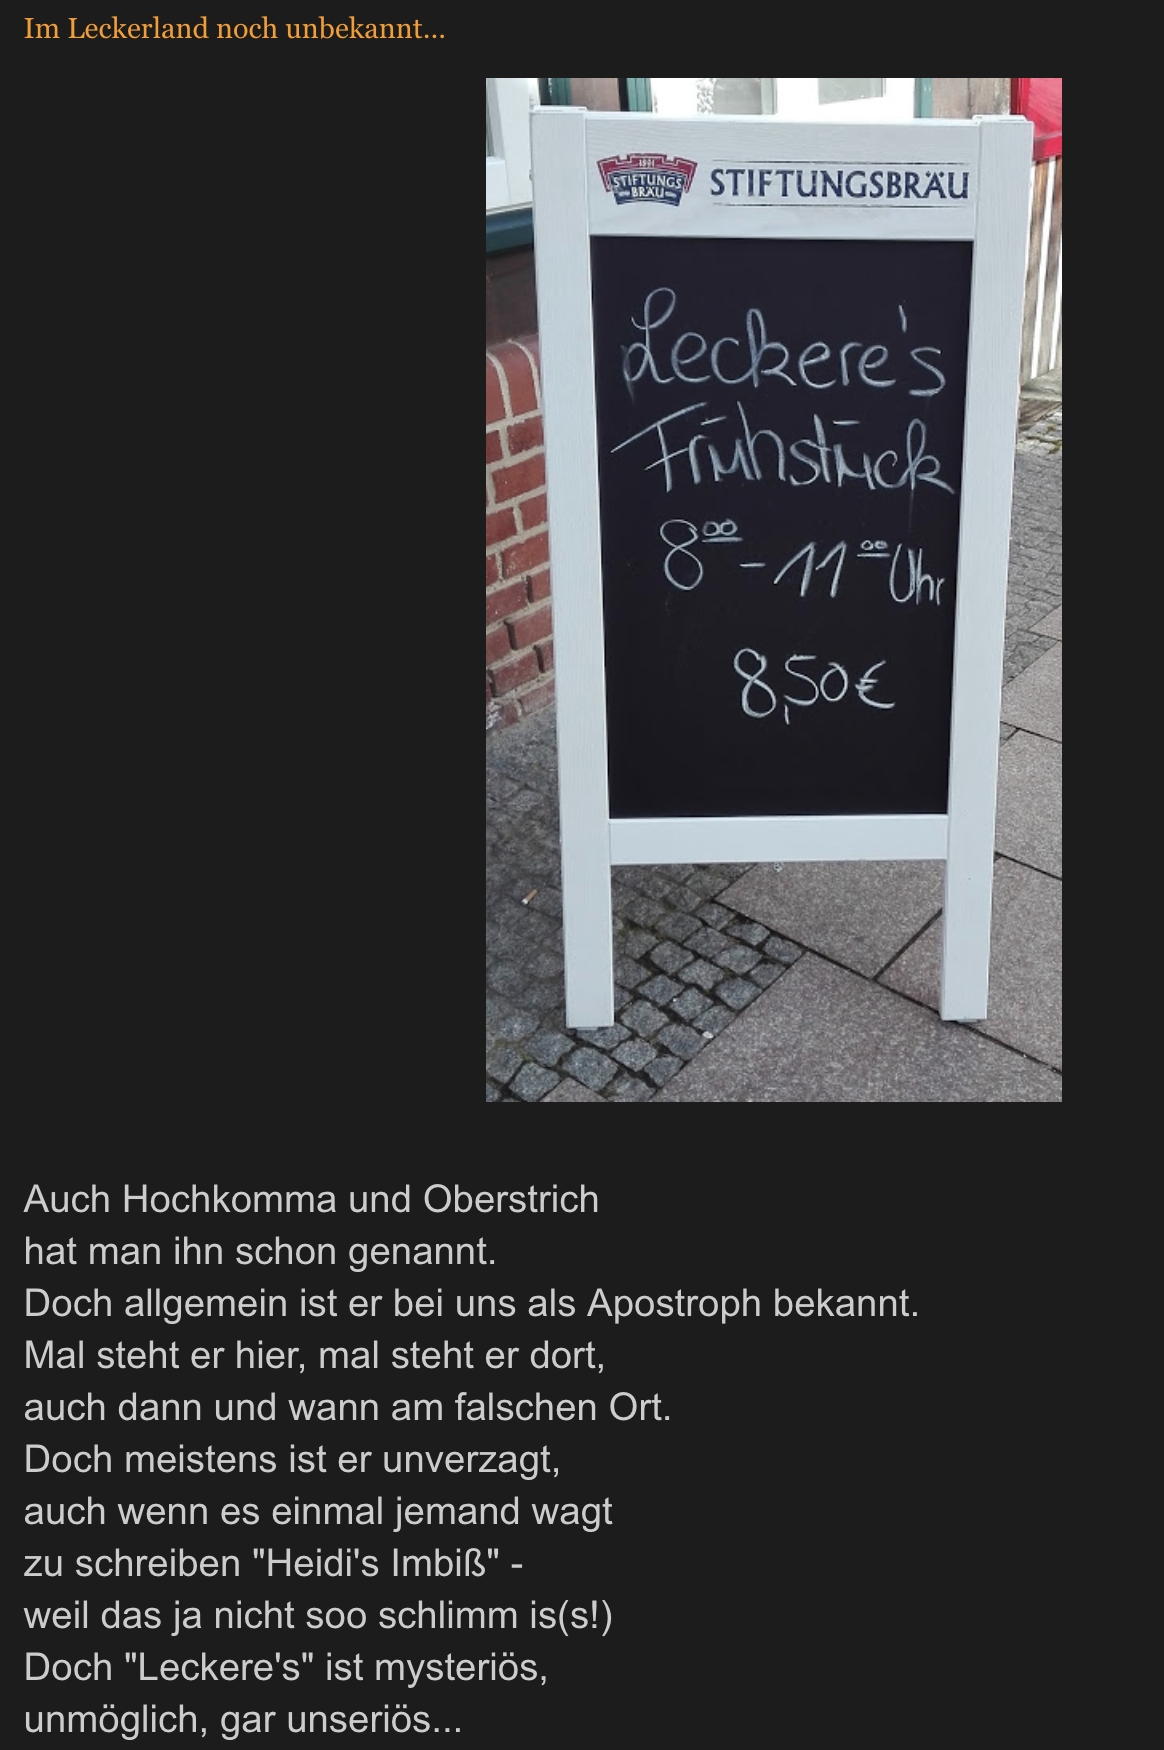 Im Leckerland noch unbekannt...
1991
STIFTUNGS
BRÄU
STIFTUNGSBRÄU
Leckere's
Frühstück
8⁰⁰ - 11⁰⁰ Uhr
8,50€
Auch Hochkomma und Oberstrich
hat man ihn schon genannt.
Doch allgemein ist er bei uns als Apostroph bekannt.
Mal steht er hier, mal steht er dort,
auch dann und wann am falschen Ort.
Doch meistens ist er unverzagt,
auch wenn es einmal jemand wagt
zu schreiben "Heidi's Imbiß" -
weil das ja nicht soo schlimm is(s!)
Doch "Leckere's" ist mysteriös,
unmöglich, gar unseriös...